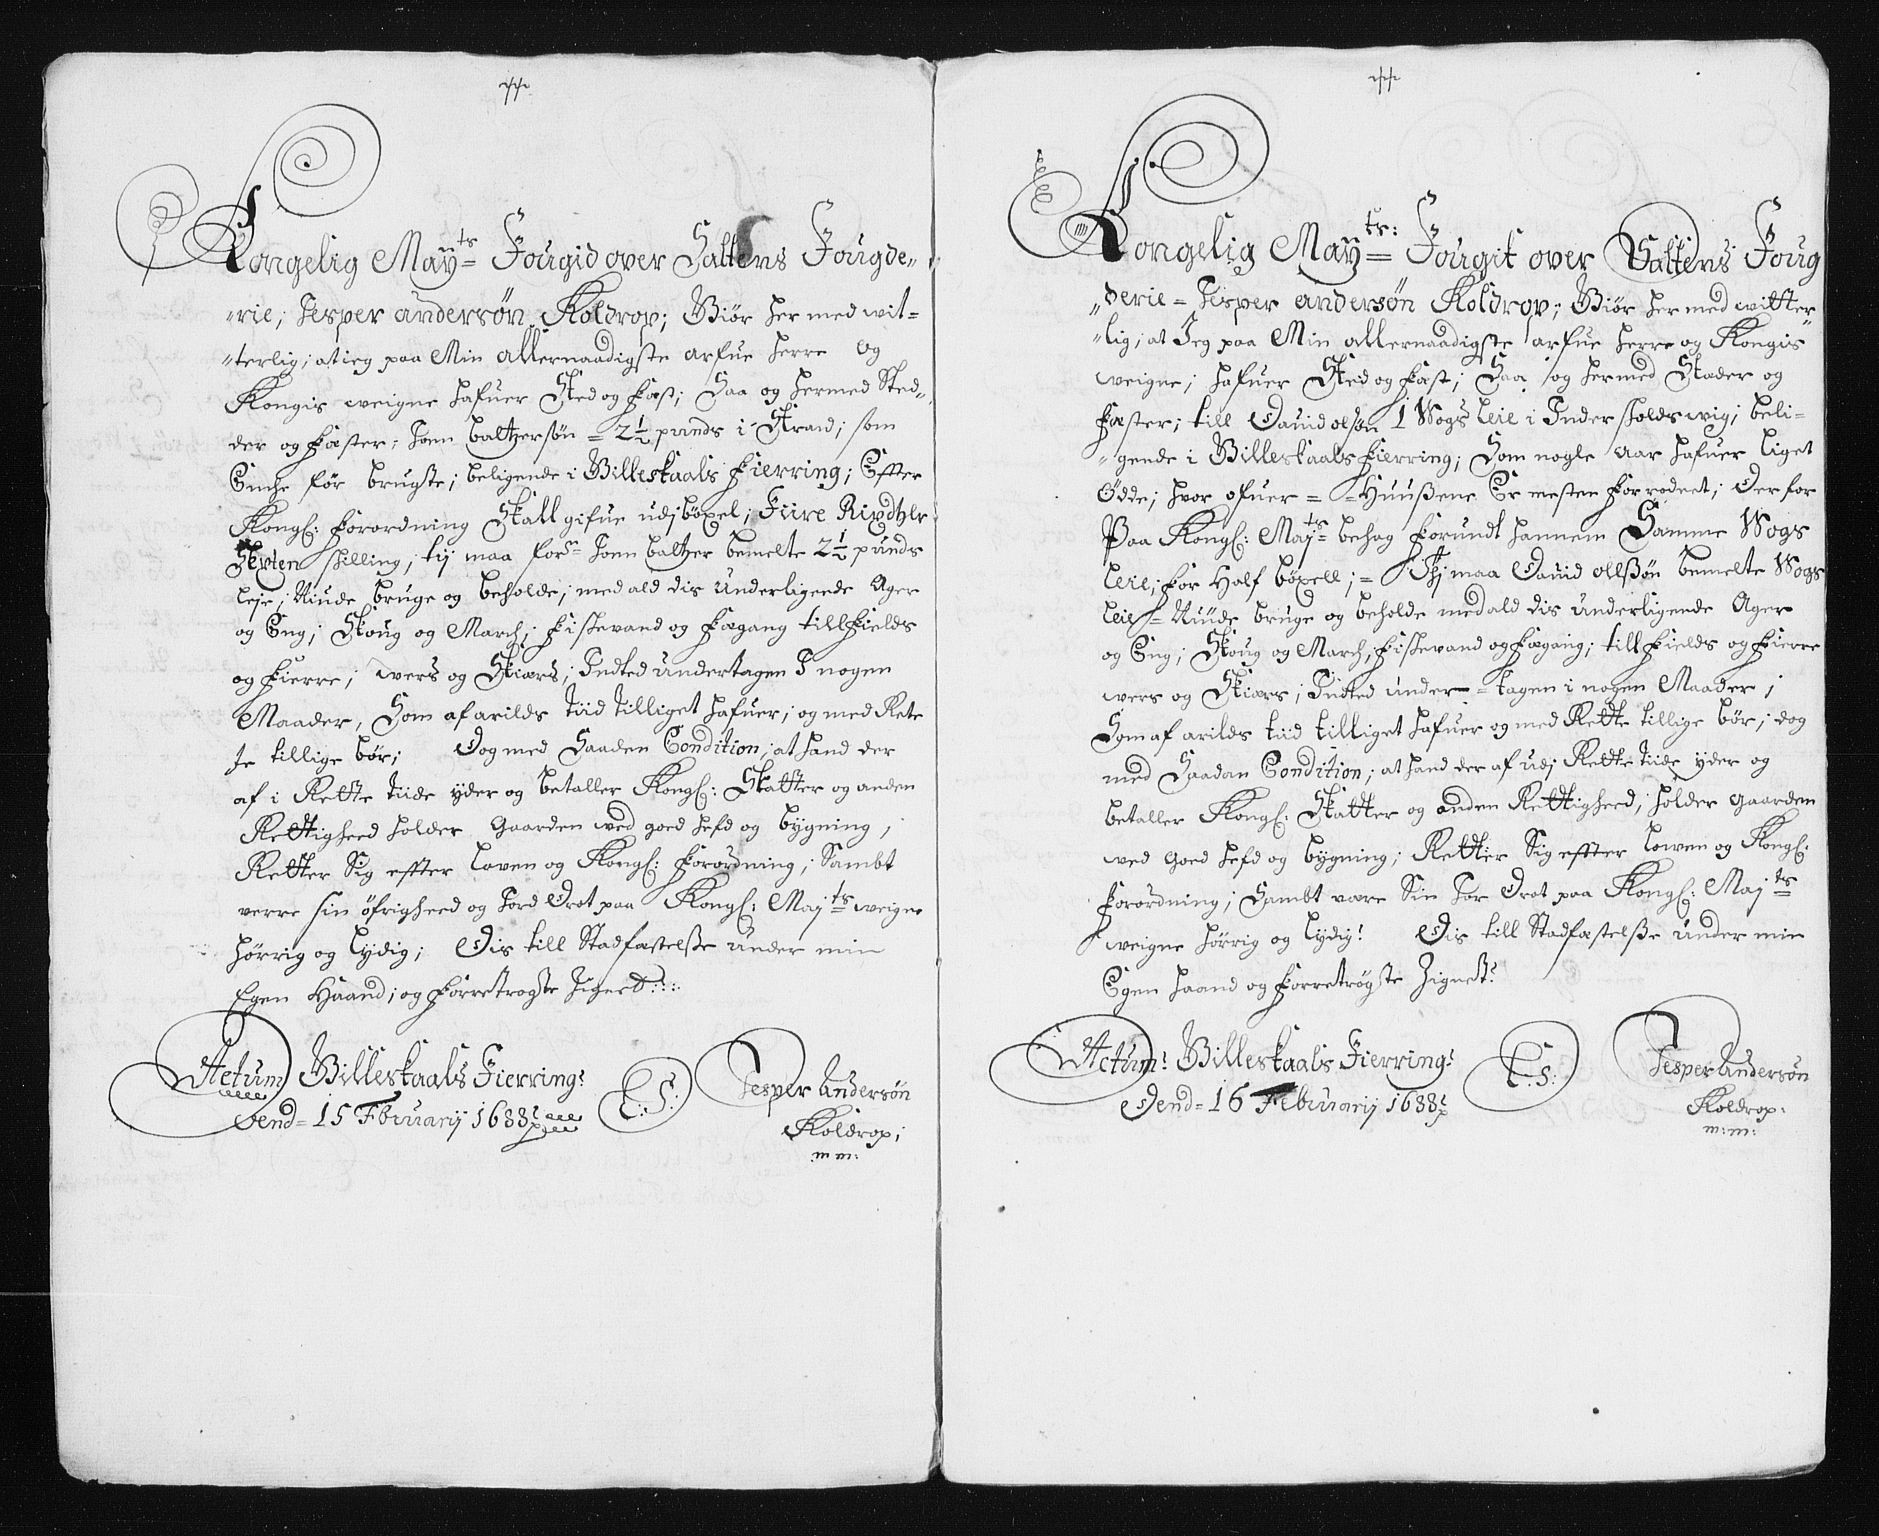 Kongelig May:ts Fougid over Saltens Fougde„
„rie, Jesper andersøn Koldrop; Giør her med wit=
„terlig; at ieg paa Min allernaadigste arfue herre og
Kongis weigne hafuer Sted og fæst; Saa og hermed Sted„
der og fæster; Jonn baltzersøn = 2½ punds i Strand; som
før brugte; beligende i Billeskaals fierring; Efter
Kongl: forordning Skall gifue udj bøxel; Fiire Rixdlr
Sexten skilling; tij maa forsn Jonn baltzer bemelte 2½ punds
leje; Niude bruge og beholde; med ald dis underligende Ager
og Eng; Skoug og March; fiskevand og fægang till fields
og fierre; wers og Skiærs; Indted undertagen I nogen
Maader, Som af arilds tiid tilliget hafuer; og med Rete
te tillige bør; Dog med Saaden Condition; at hand der
af i Rette tiide yder og betaller Kongl: Skatter og anden
Rettigheed holder Gaarden ved goed hefd og bygning;
Retter Sig effter loven og Kongl: forordning; Sambt
verre sin øfrigheed og Jord Drot paa Kongl: Maj:ts weigne
hørrig og lydig; Dis till Stadfæstelsse under min
Egen Haand; og forretrogte Signet:::
Actum Billeskaals Fierring:
Dend = 15 Fbruarij 1688:
L:S:
Jesper Andersøn
Koldrop;
m m:
Kongelig May:ts: Fougit over Saltens Foug
„derie = Jesper andersøn Koldrop; Giør her med witter„
„lig; at Jeg paa Min allernaadigste arfue herre og Kongis
weigne; hafuer Sted og fæst; Saa og hermed Stæder og
fæster; till David olsøn 1 Wogs leie i Inder skoldswig; beli=
„gende i Billeskaals fierring; Som nogle aar hafuer liget
Øde; hvor ofuer = = Huussene Er mesten forrodnet; Derfor
Paa Kongl: Maj:ts behag forundt hannem Samme Wogs
leie; for Half bøxell; = Thj maa David ollssøn bemelte Wogs
leie = Niude bruge og beholde med ald dis underligende Ager
og Eng; Skoug og March; fiskevand og fægang; till fields og fierre
wers og Skiærs; Indted under = tagen i nogen Maader;
Som af arilds tiid tilliget hafuer og med Rette tillige bør; dog
med Saadan Condition; at hand der af udj Rette tiide yder og
betaller Kongl: Skatter og anden Rettigheed; holder Gaarden
ved Goed hefd og bygning; Retter Sig effter lowen og Kongl:
forordning; Sambt være Sin Jor Drot paa Kongl: Maj:ts
weigne hørrig og lydig! Dis till Stadfæstelsse under min
Egen haand og forretrøgte Zignet:
Actum: Billeskaals Fierring:
Dend = 16 Februarij 1688:
L:S:
Jesper Andersøn
Koldrop:
m:m: